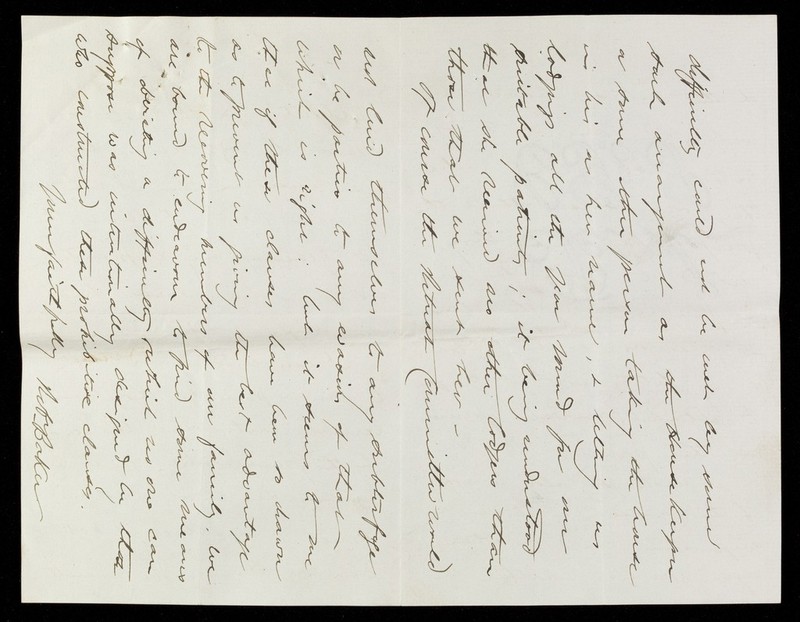 difficulty could not be met by some
such arrangement as the Housekeeper
or some other person taking the house
in his or her name, & letting us
lodgings all the year round for our
suitable patients; it being understood
that she received no other lodgers than
those that we sent her -
Of course the Retreat Committee would
not lend themselves to any subterfuge
or be parties to any evasion of that
which is right: but it seems to me
that if these clauses have been so drawn
as to prevent us giving the best advantage
to the recovering members of our family, we
are bound to endeavour to find some means
of obviating a difficulty which no one can
suppose was intentionally designed by those
who constructed these prohibitive clauses.
Yours faithfully Baker